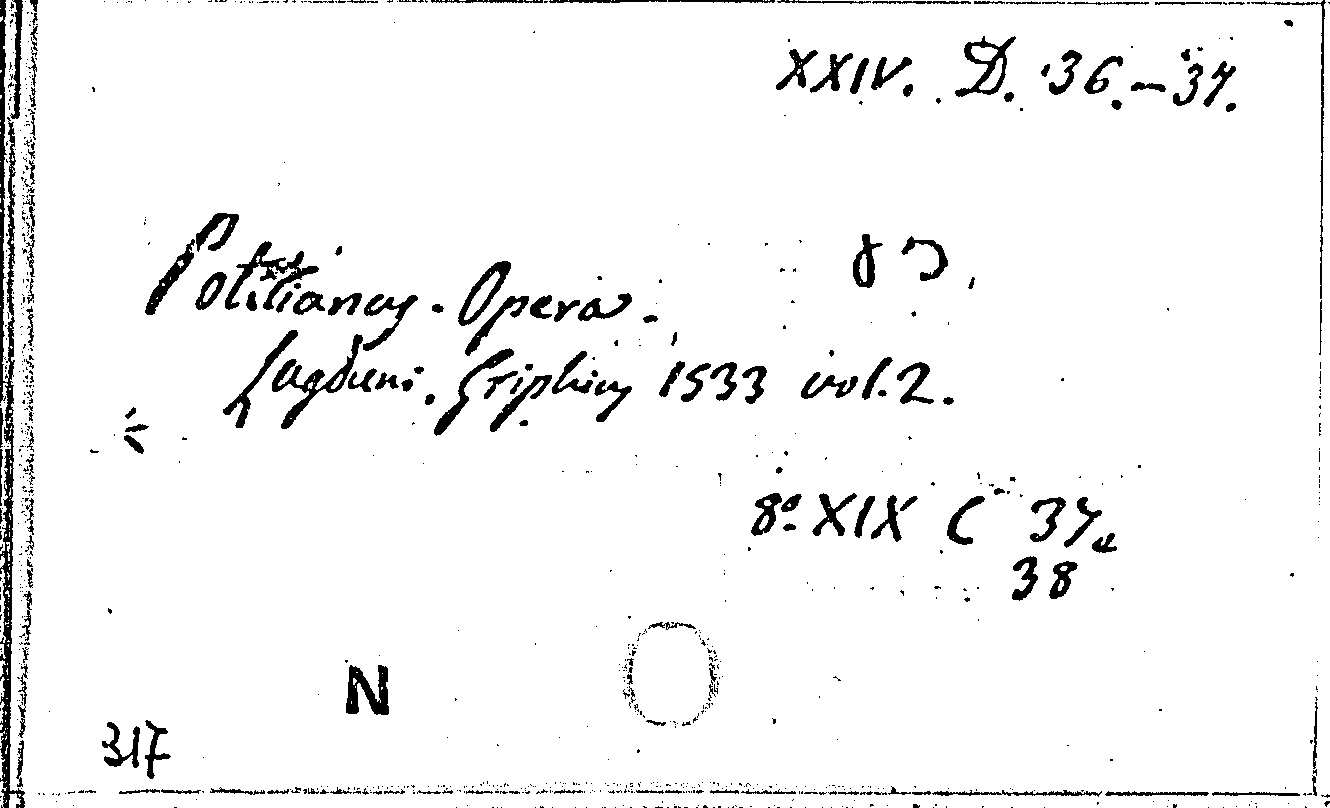 XXIV. D. 36.-37.
Politianus. Opera.
Lugduni. Griphius 1533 vol. 2.
8º XIX C 37
38
N
317